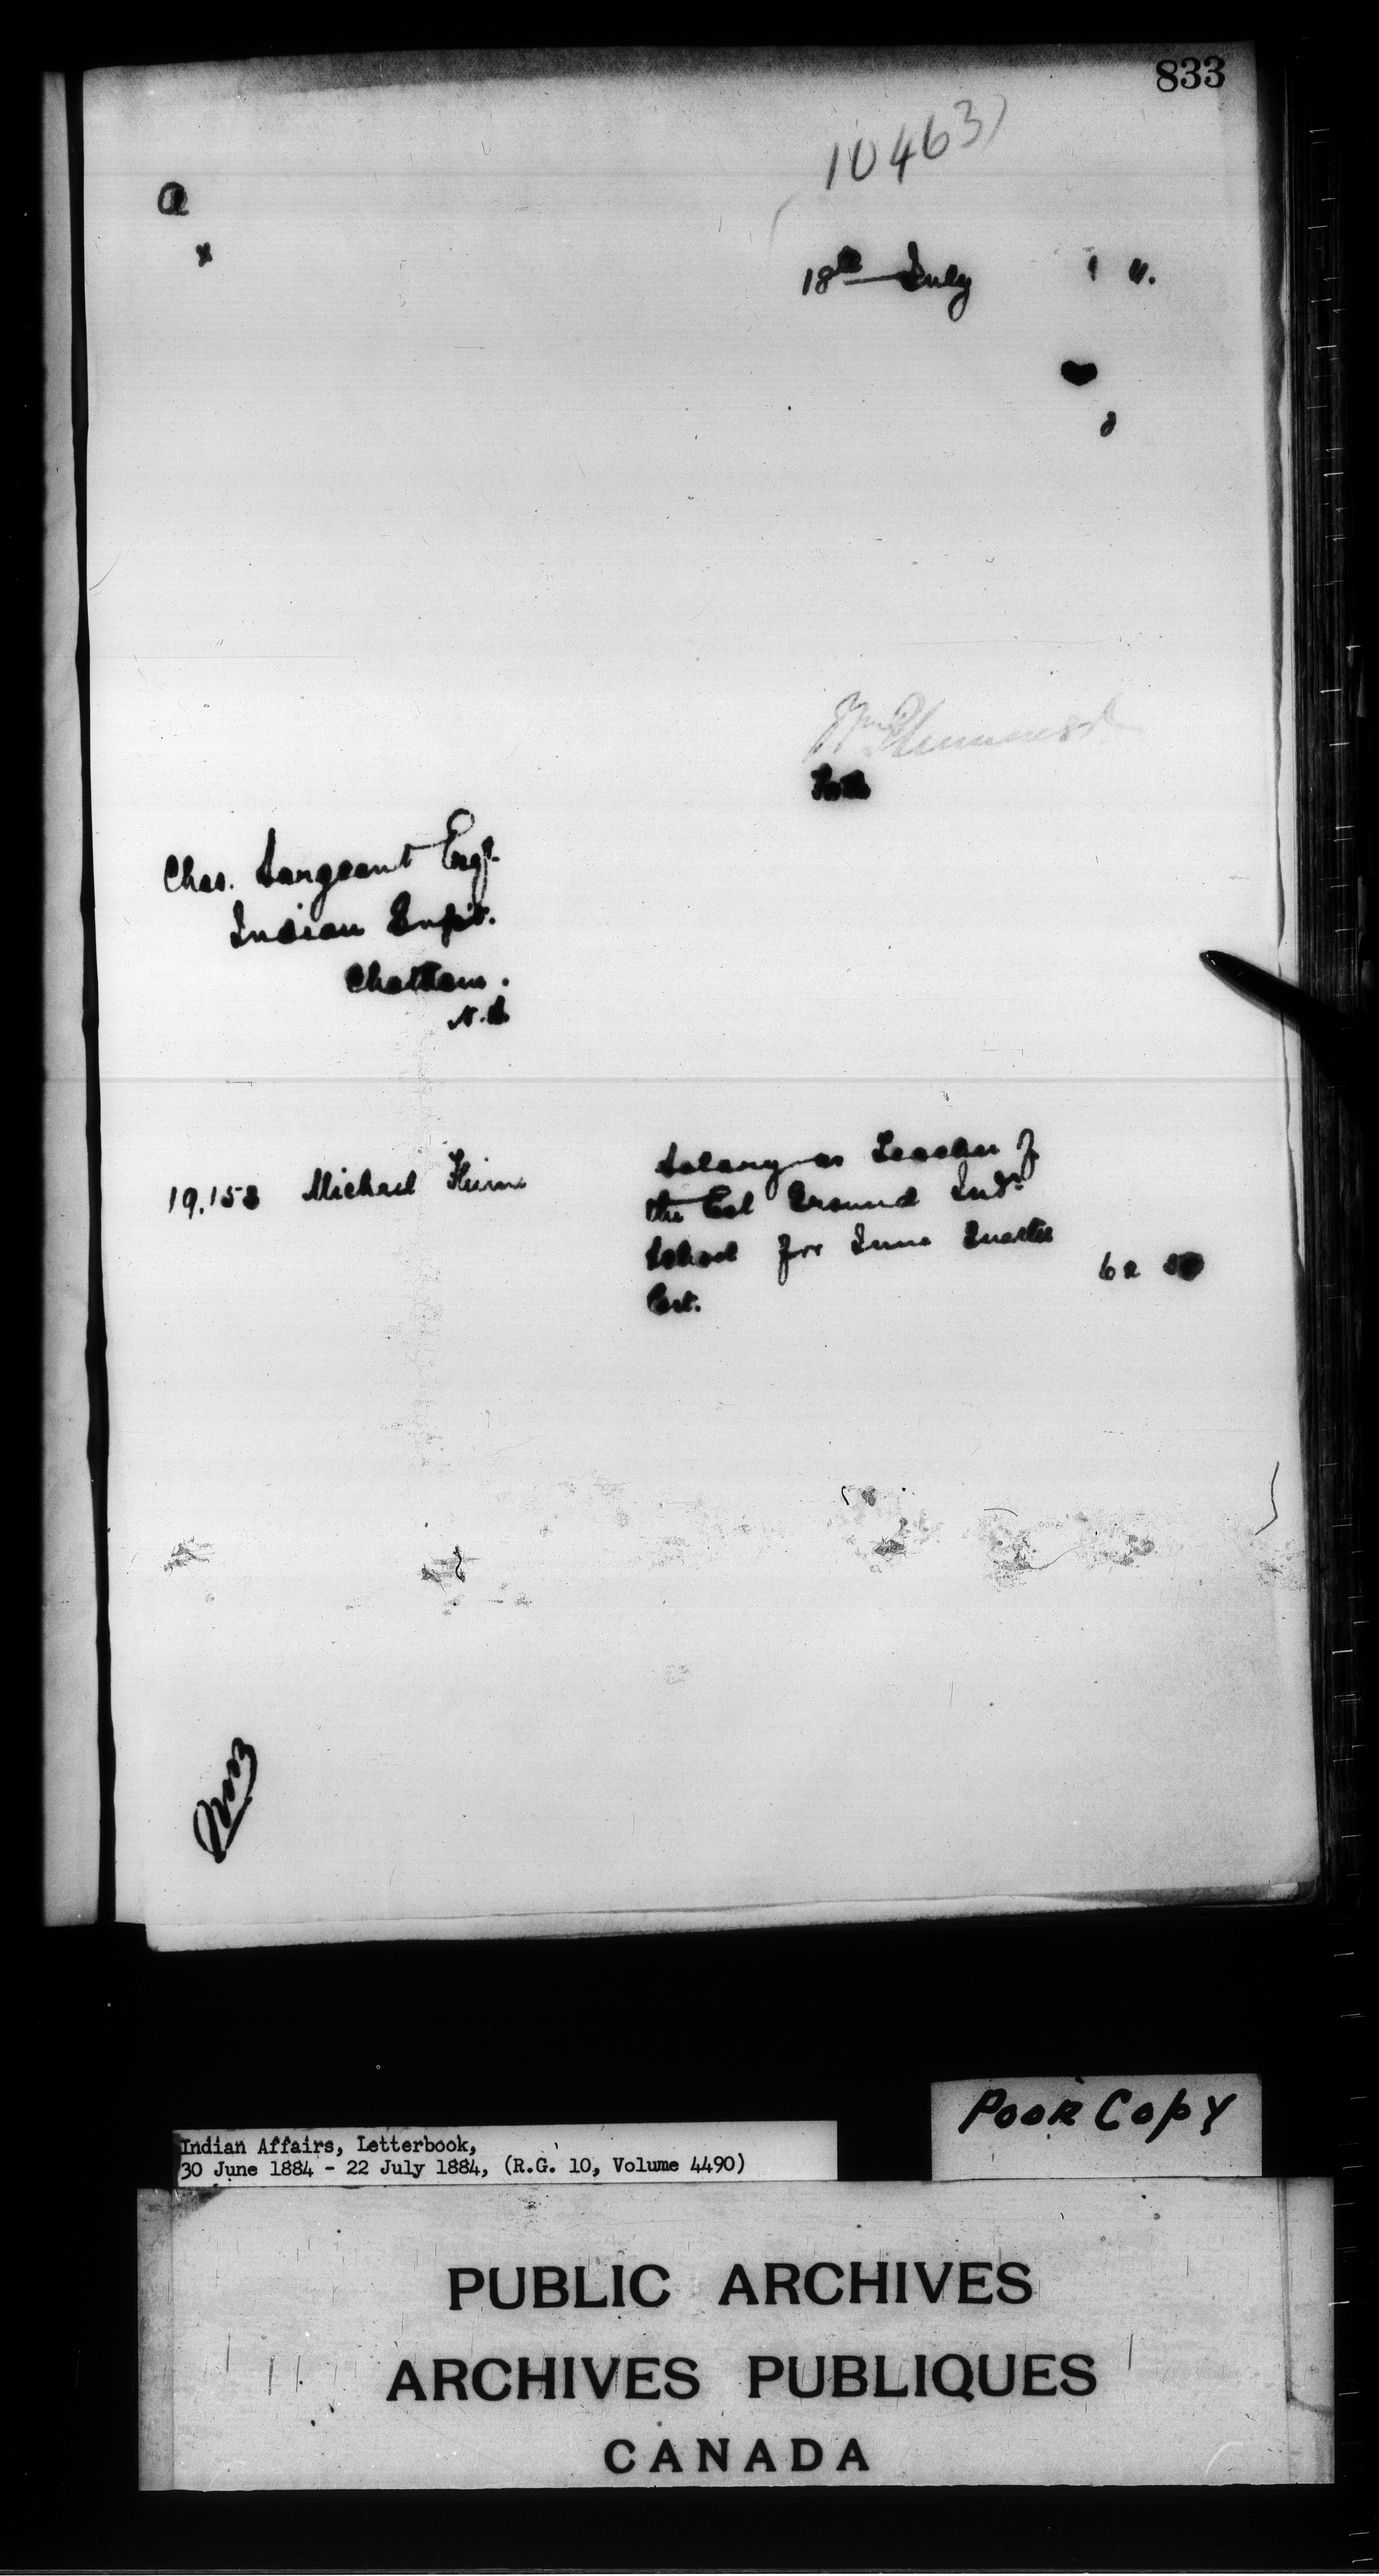 833
10463
18th July
Wm Plummer
Chas. Sargeant Esqr.
Indian Supt.
Chatham.
N.B
19.153 Michael Flinne
Salary as Teacher of
the Eel Ground Indn
School for June Quarter
Cert.
62 50
Indian Affairs, Letterbook,
30 June 1884 - 22 July 1884, (R.G. 10, Volume 4490)
Poor Copy
PUBLIC ARCHIVES
ARCHIVES PUBLIQUES
CANADA